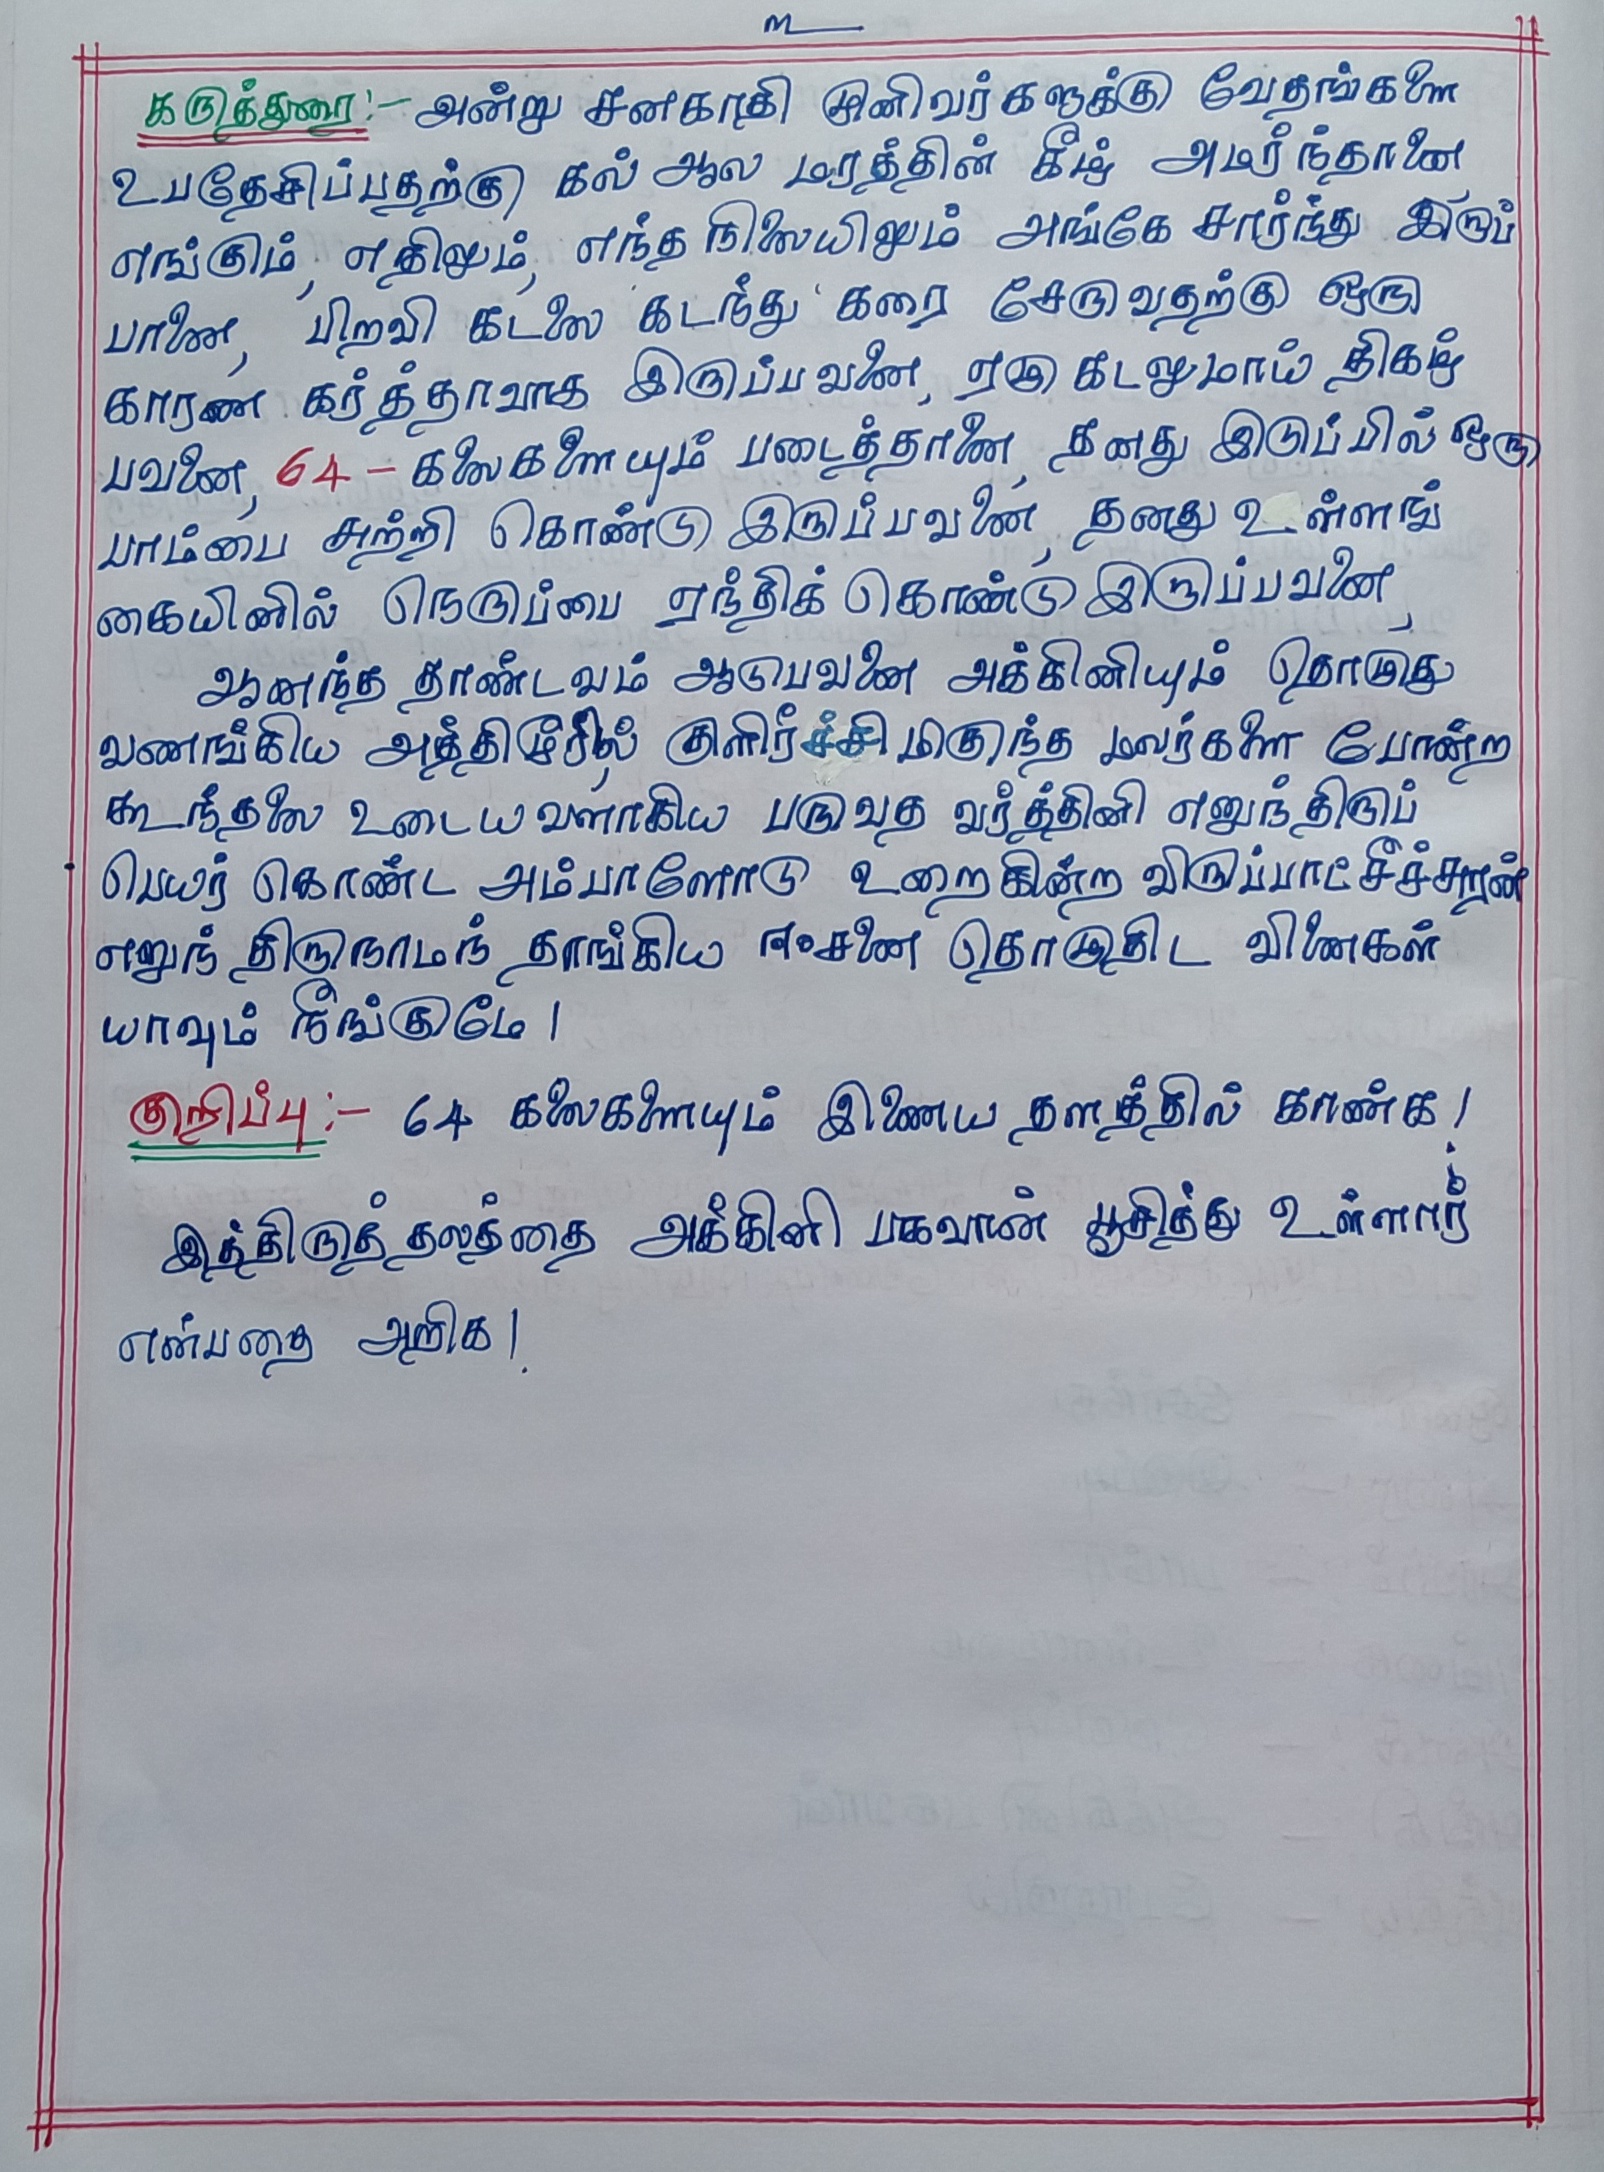 கருத்துரை:- அன்று சனகாதி முனிவர்களுக்கு வேதங்களை
உபதேசிப்பதற்கு கல் ஆல மரத்தின் கீழ் அமர்ந்தானை
எங்கும், எதிலும், எந்த நிலையிலும் அங்கே சார்ந்து இருப்
பானை, பிறவி கடலை கடந்து கரை சேருவதற்கு ஒரு
காரண கர்த்தாவாக இருப்பவனை, ஏழு கடலுமாய் திகழ்
பவனை, 64 - கலைகளையும் படைத்தானை, தனது இடுப்பில் ஒரு
பாம்பை சுற்றி கொண்டு இருப்பவனை, தனது உள்ளங்
கையினில் நெருப்பை ஏந்திக் கொண்டு இருப்பவனை,
ஆனந்த தாண்டவம் ஆடுபவனை அக்கினியும் தொழுது
வணங்கிய குளிர்ச்சி மிகுந்த மலர்களை போன்ற
கூந்தலை உடையவளாகிய பருவத வர்த்தினி எனுந்திருப்
பெயர் கொண்ட அம்பாளோடு உறைகின்ற விருப்பாட்சீச்சுரன்
எனுந் திருநாமந் தாங்கிய ஈசனை தொழுதிட வினைகள்
யாவும் நீங்குமே!
குறிப்பு:- 64 கலைகளையும் இணைய தளத்தில் காண்க!
இத்திருத்தலத்தை அக்கினி பகவான் பூசித்து உள்ளார்
என்பதை அறிக!